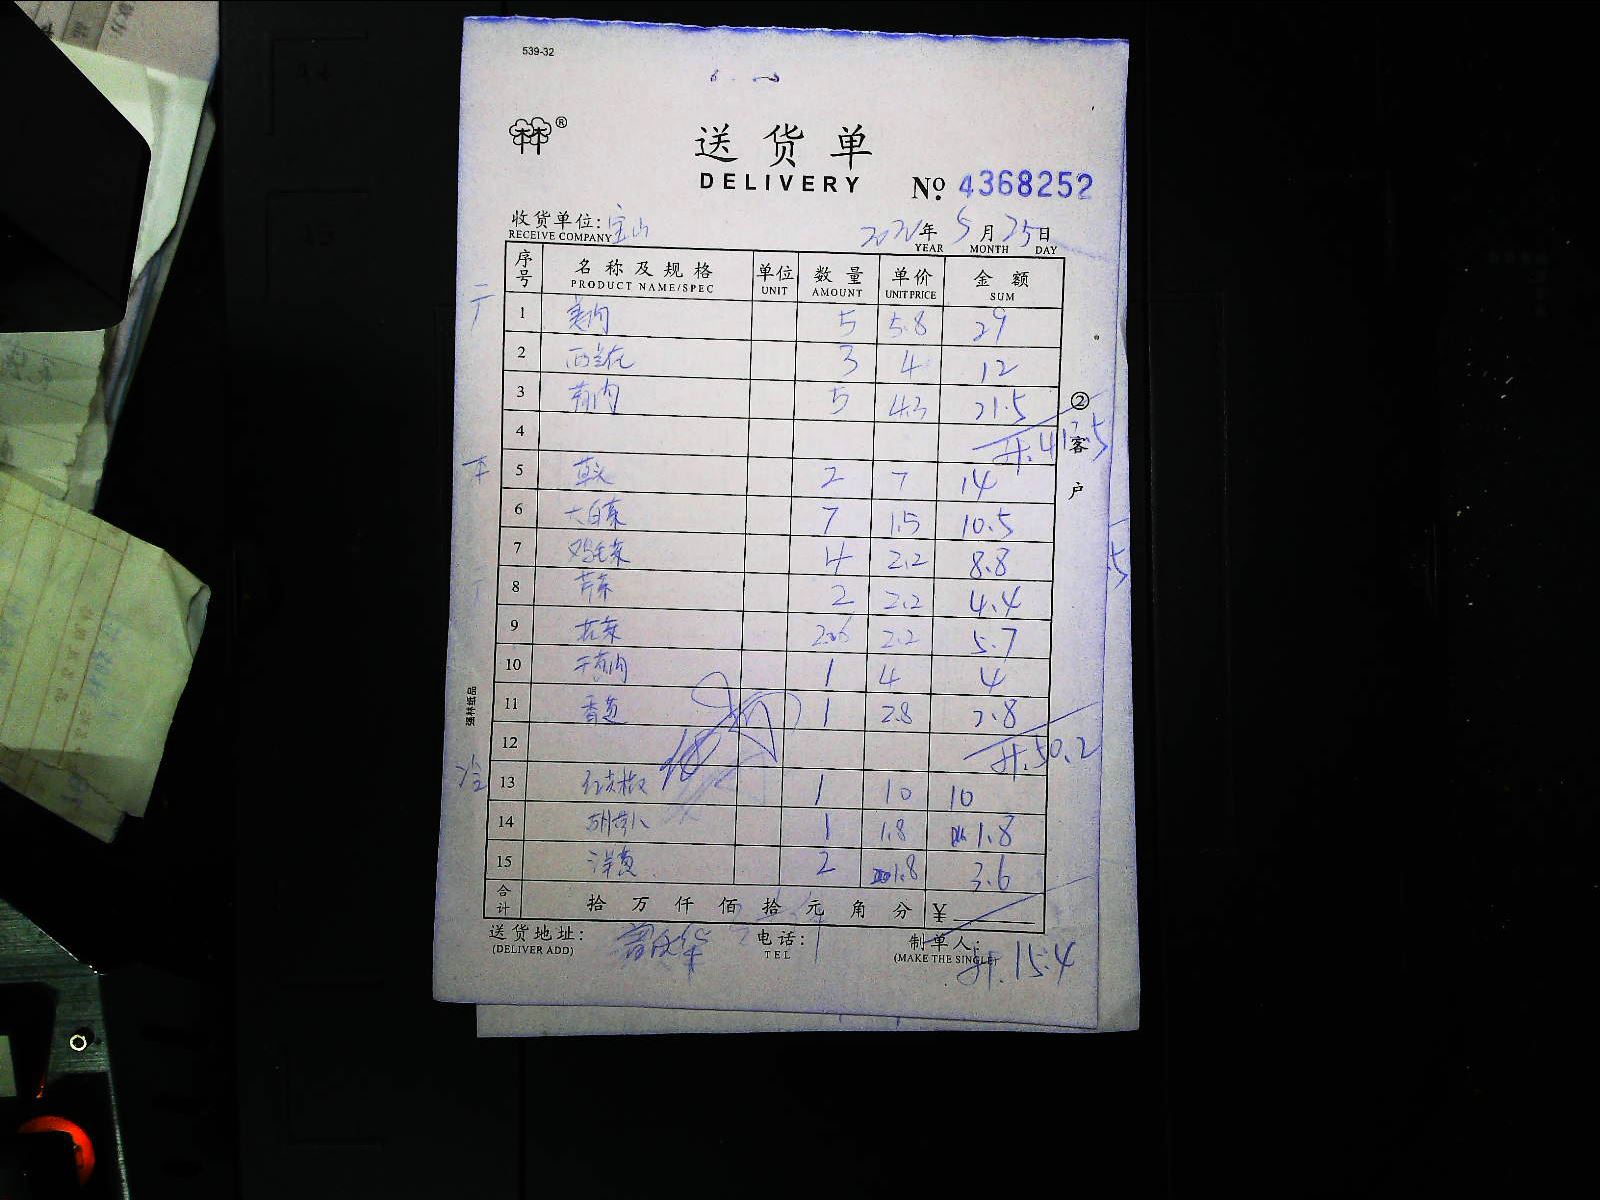 539-32
送货单
DELIVERY
№ 4368252
收货单位: 宝山
RECEIVE COMPANY
年 5月25日
YEAR MONTH DAY
序号 名称及规格 单位 数量 单价 金额
PRODUCT NAME/SPEC UNIT AMOUNT UNITPRICE SUM
1 5 5.8 29
2 西兰花 3 4 12
3 5 4.3 21.5
4
5 草头 2 7 14
6 大白菜 7 1.5 10.5
7 鸡毛菜 4 2.2 8.8
8 芹菜 2 2.2 4.4
9 花菜 2.6 2.2 5.7
10 1 4 4
11 香葱 1 2.8 2.8
12 计.50.2
13 1 10 10
14 胡萝卜 1 1.8 1.8
15 洋葱 2 1.8 3.6
合计 拾 万 仟 佰 拾 元 角 分 ¥
送货地址: 电话: 制单人:
(DELIVER ADD) TEL (MAKE THE SINGLE)
计.15.4
②客户
强林纸品